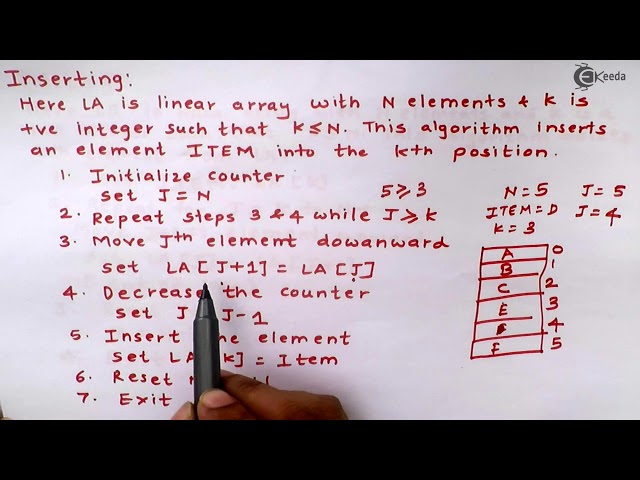 EKeeda
Inserting:
Here LA is linear array with N elements & k is
+ve integer such that k≤N. This algorithm inserts
an element ITEM into the kth position.
1. Initialize counter
set J=N
5≥3
2. Repeat steps 3 & 4 while J≥k
3. Move Jth element dowanward
set LA[J+1] = LA[J]
4. Decrease the counter
set J J-1
5. Insert the element
set LA k] = Item
6. Reset
7. Exit
N=5 J=5
ITEM=D J=4
k=3
A 0
B 1
C 2
E 3
4
F 5